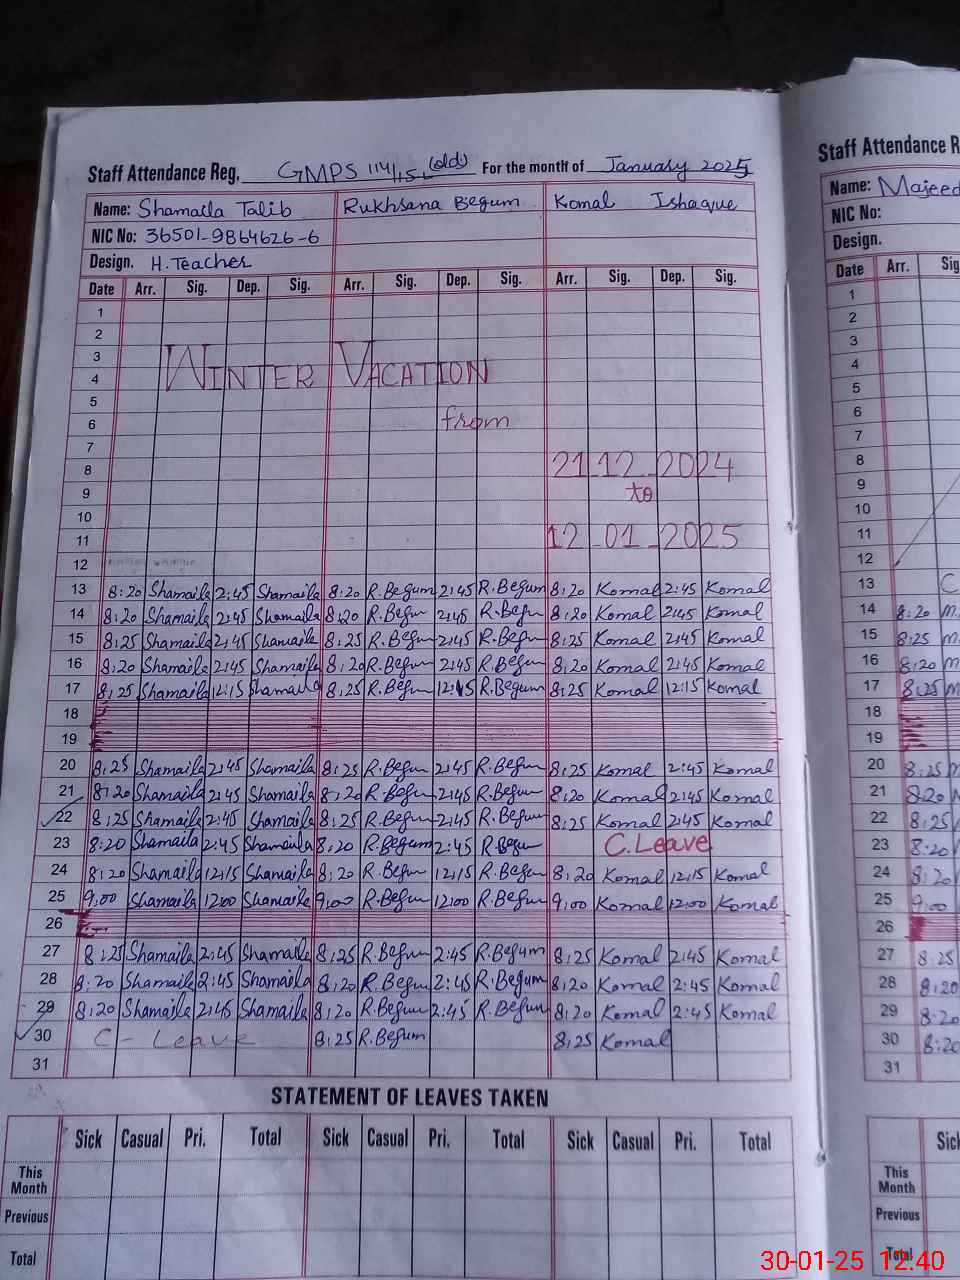 Staff Attendance Reg. GMPS 114/15-L (old) For the month of January 2025
Name: Shamaila Talib Rukhsana Begum Komal Ishaque
NIC No: 36501-9864626-6
Design. H.Teacher
Date Arr. Sig. Dep. Sig. Arr. Sig. Dep. Sig. Arr. Sig. Dep. Sig.
1
2
3
4 WINTER VACATION
5
6 from
7
8 21.12.2024
9 to
10
11 12.01.2025
12
13 8:20 Shamaila 2:45 Shamaila 8:20 R.Begum 2:45 R.Begum 8:20 Komal 2:45 Komal
14 8:20 Shamaila 2:45 Shamaila 8:20 R.Begum 2:45 R.Begum 8:20 Komal 2:45 Komal
15 8:25 Shamaila 2:45 Shamaila 8:25 R.Begum 2:45 R.Begum 8:25 Komal 2:45 Komal
16 8:20 Shamaila 2:45 Shamaila 8:20 R.Begum 2:45 R.Begum 8:20 Komal 2:45 Komal
17 8:25 Shamaila 12:15 Shamaila 8:25 R.Begum 12:15 R.Begum 8:25 Komal 12:15 Komal
18
19
20 8:25 Shamaila 2:45 Shamaila 8:25 R.Begum 2:45 R.Begum 8:25 Komal 2:45 Komal
21 8:20 Shamaila 2:45 Shamaila 8:20 R.Begum 2:45 R.Begum 8:20 Komal 2:45 Komal
22 8:25 Shamaila 2:45 Shamaila 8:25 R.Begum 2:45 R.Begum 8:25 Komal 2:45 Komal
23 8:20 Shamaila 2:45 Shamaila 8:20 R.Begum 2:45 R.Begum C.Leave
24 8:20 Shamaila 12:15 Shamaila 8:20 R.Begum 12:15 R.Begum 8:20 Komal 12:15 Komal
25 9:00 Shamaila 12:00 Shamaila 9:00 R.Begum 12:00 R.Begum 9:00 Komal 12:00 Komal
26
27 8:25 Shamaila 2:45 Shamaila 8:25 R.Begum 2:45 R.Begum 8:25 Komal 2:45 Komal
28 8:20 Shamaila 2:45 Shamaila 8:20 R.Begum 2:45 R.Begum 8:20 Komal 2:45 Komal
29 8:20 Shamaila 2:45 Shamaila 8:20 R.Begum 2:45 R.Begum 8:20 Komal 2:45 Komal
30 C-Leave 8:25 R.Begum 8:25 Komal
31
STATEMENT OF LEAVES TAKEN
Sick Casual Pri. Total Sick Casual Pri. Total Sick Casual Pri. Total
This Month
Previous
Total
Staff Attendance
Name: Majeed
NIC No:
Design.
Date Arr.
1
2
3
4
5
6
7
8
9
10
11
12
13 C
14 8:20
15 8:25
16 8:20
17 8:25
18
19
20 8:25
21 8:20
22 8:25
23 8:20
24 8:20
25 9:00
26
27 8:25
28 8:20
29 8:20
30 8:20
31
This Month
Previous
Total
30-01-25 12:40